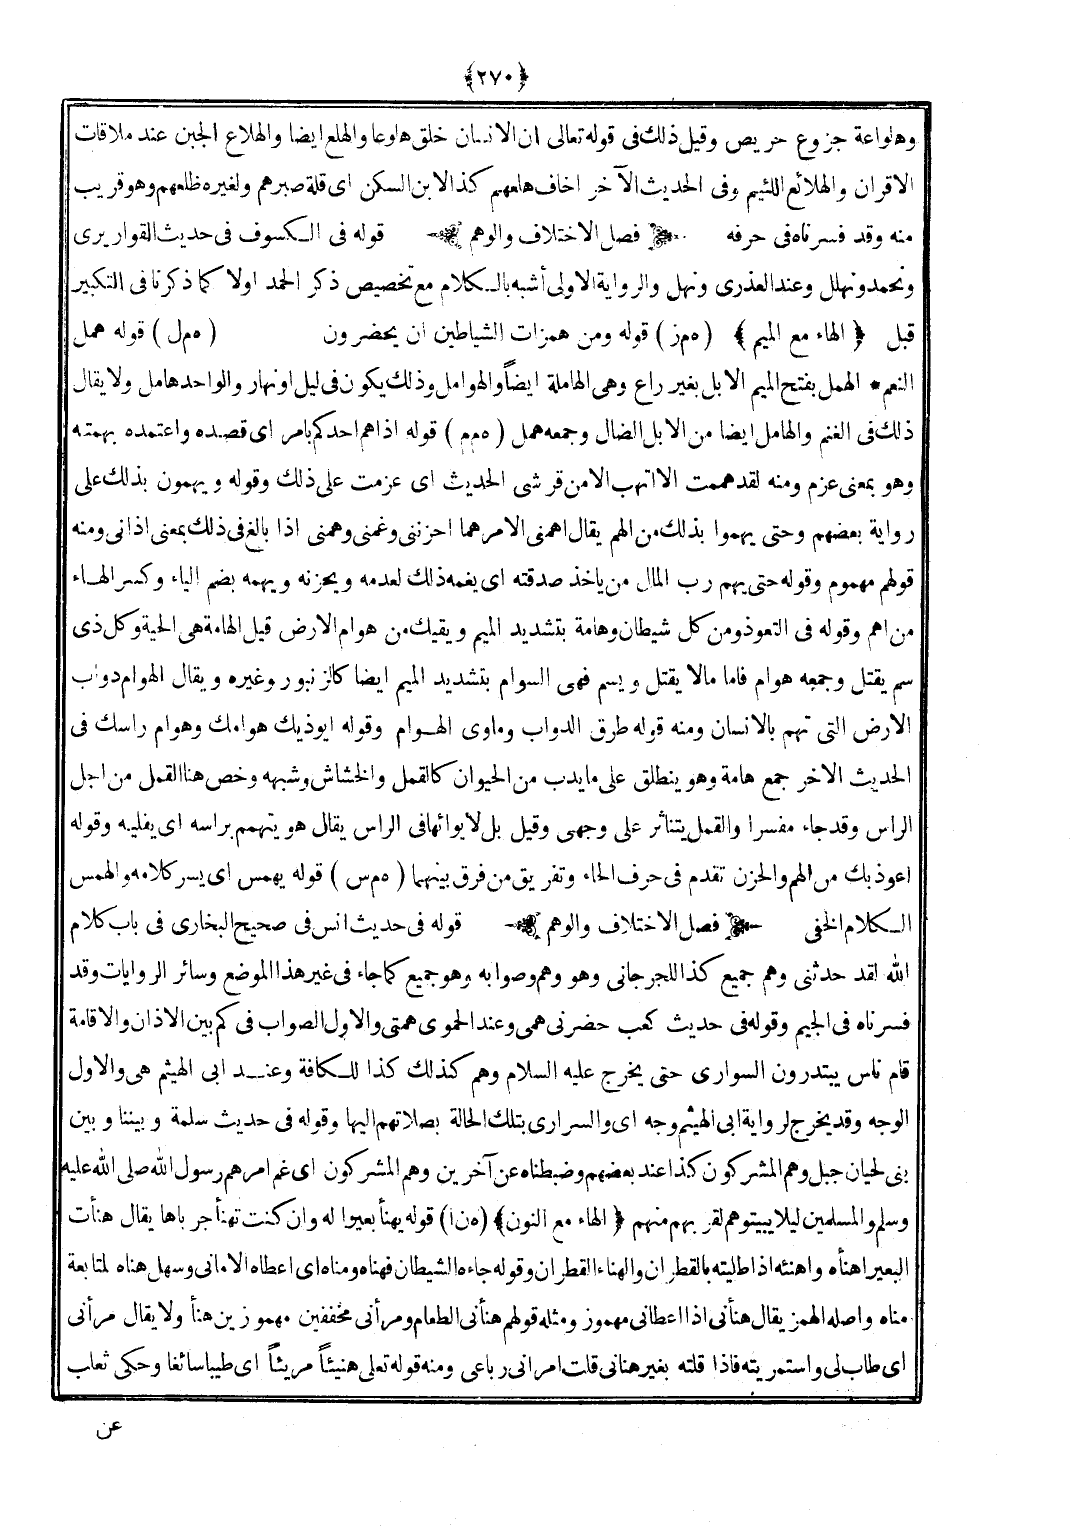 ﴿٢٧٠﴾
وهلواعة جزوع حريص وقيل ذلك فى قوله تعالى ان الانسان خلق هلوعا والهلع ايضا والهلاع الجبن عند ملاقات
الاقران والهلائع اللئيم وفى الحديث الآخر اخاف هلعهم كذا لابن السكن اى قلة صبرهم ولغيره ظلعهم وهو قريب
منه وقد فسرناه فى حرفه فصل الاختلاف والوهم قوله فى الكسوف فى حديث القواريرى
ونحمد ونهلل وعند العذرى ونهل والرواية الاولى أشبه بالكلام مع تخصيص ذكر الحمد اولا كما ذكرنا فى التكبير
قبل ﴿ الهاء مع الميم ﴾ (ه‍ م ز) قوله ومن همزات الشياطين ان يحضرون (ه‍ م ل) قوله همل
النعم * الهمل بفتح الميم الابل بغير راع وهى الهاملة ايضاً والهوامل وذلك يكون فى ليل او نهار والواحد هامل ولا يقال
ذلك فى الغنم والهامل ايضا من الابل الضال وجمعه همل (ه‍ م م) قوله اذا هم احدكم بامر اى قصده واعتمده بهمته
وهو بمعنى عزم ومنه لقد هممت الا اتهب الا من قرشى الحديث اى عزمت على ذلك وقوله ويهمون بذلك على
رواية بعضهم وحتى يهموا بذلك من الهم يقال اهمنى الامر هما احزننى وغمنى وهمنى اذا بالغ فى ذلك بمعنى اذانى ومنه
قولهم مهموم وقوله حتى يهم رب المال من ياخذ صدقته اى يغمه ذلك لعدمه ويحزنه ويهمه بضم الياء وكسر الهاء
من اهم وقوله فى التعوذ ومن كل شيطان وهامة بتشديد الميم ويقيك من هوام الارض قيل الهامة هى الحية وكل ذى
سم يقتل وجمعه هوام فاما مالا يقتل ويسم فهى السوام بتشديد الميم ايضا كالزنبور وغيره ويقال الهوام دواب
الارض التى تهم بالانسان ومنه قوله طرق الدواب وماوى الهوام وقوله ايوذيك هوامك وهوام راسك فى
الحديث الاخر جمع هامة وهو ينطلق على ما يدب من الحيوان كالقمل والخشاش وشبهه وخص هنا القمل من اجل
الراس وقد جاء مفسرا والقمل يتناثر على وجهى وقيل بل لايوائها فى الراس يقال هو يتهمم براسه اى يفليه وقوله
اعوذ بك من الهم والحزن تقدم فى حرف الحاء وتفريق من فرق بينهما (ه‍ م س) قوله يهمس اى يسر كلامه والهمس
الكلام الخفى فصل الاختلاف والوهم قوله فى حديث انس فى صحيح البخارى فى باب كلام
الله لقد حدثنى وهم جميع كذا للجرجانى وهو وهم وصوابه وهو جميع كما جاء فى غير هذا الموضع وسائر الروايات وقد
فسرناه فى الجيم وقوله فى حديث كعب حضرنى همى وعند الحموى همتى والاول الصواب فى كم بين الاذان والاقامة
قام ناس يبتدرون السوارى حتى يخرج عليه السلام وهم كذلك كذا للكافة وعند ابى الهيثم هى والاول
الوجه وقد يخرج لرواية ابى الهيثم وجه اى والسرارى بتلك الحالة بصلاتهم اليها وقوله فى حديث سلمة وبيننا وبين
بنى لحيان جبل وهم المشركون كذا عند بعضهم وضبطناه عن آخرين وهم المشركون اى غم امرهم رسول الله صلى الله عليه
وسلم والمسلمين ليلا يبيتوهم لقربهم منهم ﴿ الهاء مع النون﴾ (ه‍ ن ا) قوله يهنأ بعيرا له وان كنت تهنأ جرباها يقال هنأت
البعير اهنأه واهنئه اذا طليته بالقطران والهناء القطران وقوله جاءه الشيطان فهناه ومناه اى اعطاه الامانى وسهل هناه لمتابعة
مناه واصله الهمز يقال هنأنى اذا اعطانى مهموز ومثله قولهم هنأنى الطعام ومرأنى مخففين مهموزين هنأ ولا يقال مرأنى
اى طاب لى واستمريته فاذا قلته بغير هنانى قلت امرانى رباعى ومنه قوله تعلى هنيئاً مريئاً اى طيبا سائغا وحكى ثعاب
عن